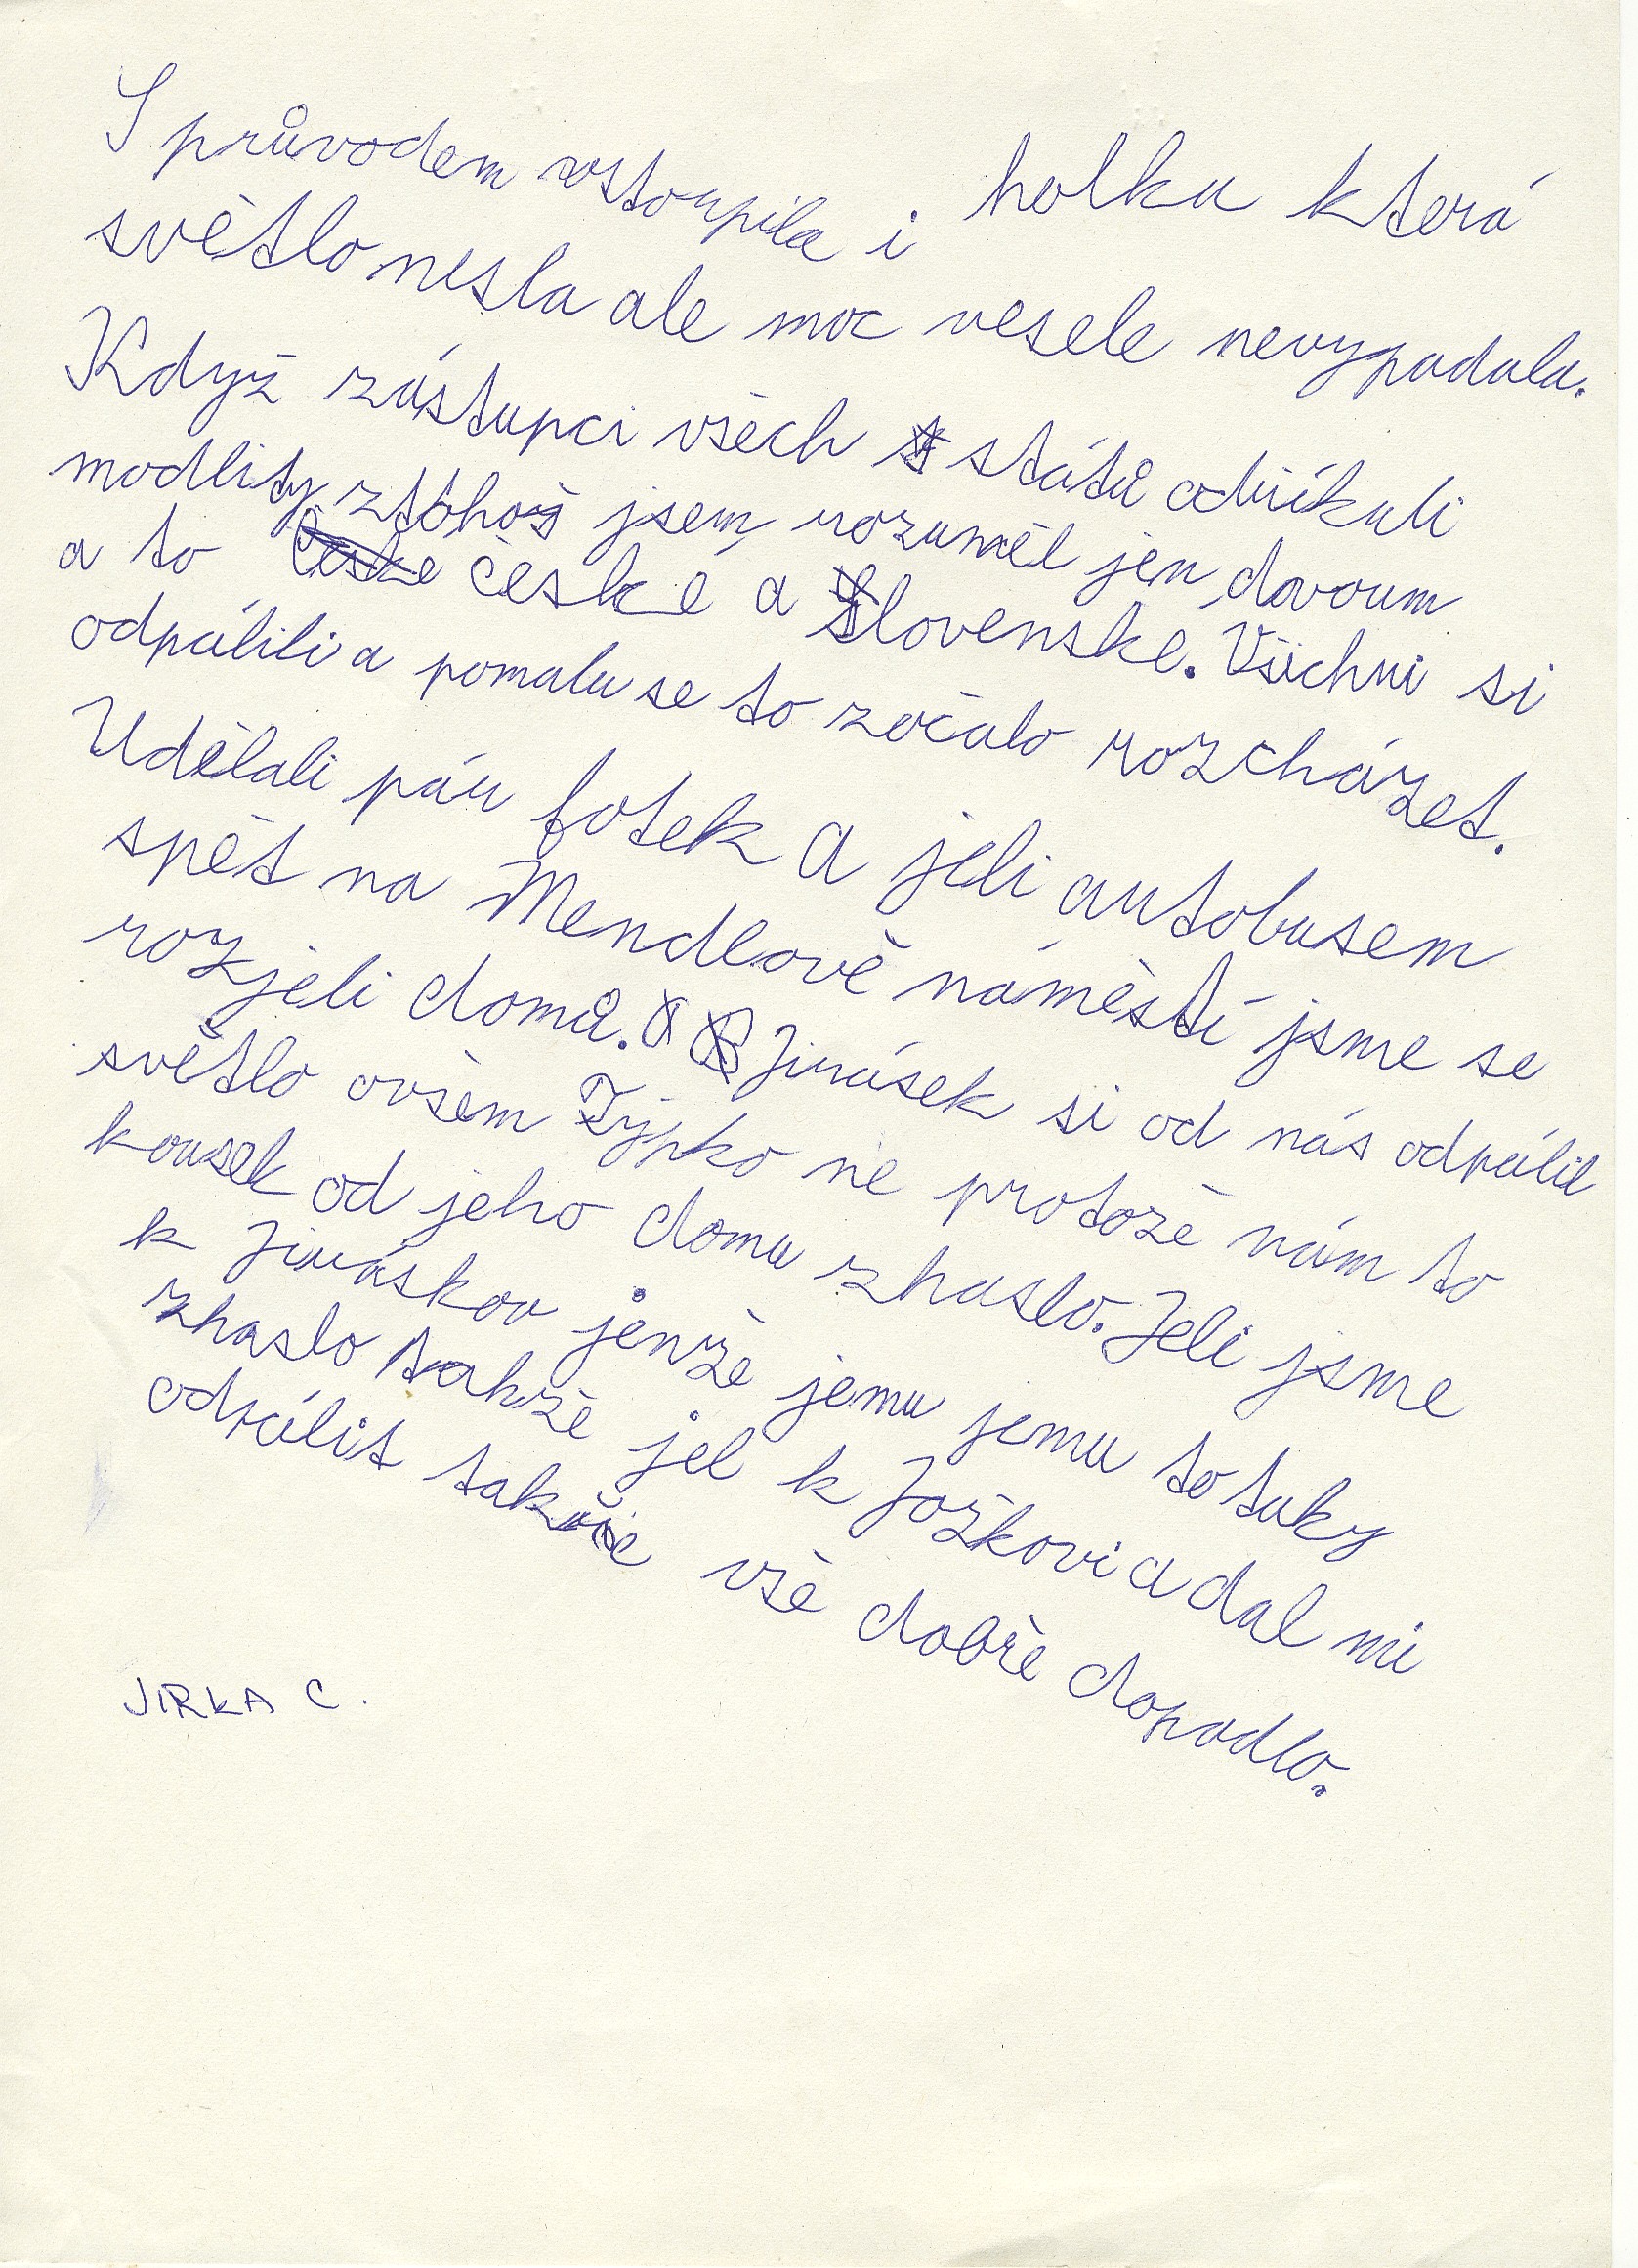 S průvodem vstoupila i holka která
světlo nesla ale moc vesele nevypadala.
Když zástupci všech států odříkali
modlitby z tohoš jsem rozuměl jen dvoum
a to české a Slovenské. Všichni si
odpálili a pomalu se to začalo rozcházet.
Udělali pár fotek a jeli autobusem
spět na Mendlově náměstí jsme se
rozjeli domů. Jirásek si od nás odpálil
světlo ovšem Typko ne protože nám to
kousek od jeho domu zhaslo. Jeli jsme
k Jiráskov jenže jemu jemu to taky
zhaslo takže jel k Jožkovi a dal mi
odpálit takže vše dobře dopadlo.
JIRKA C.